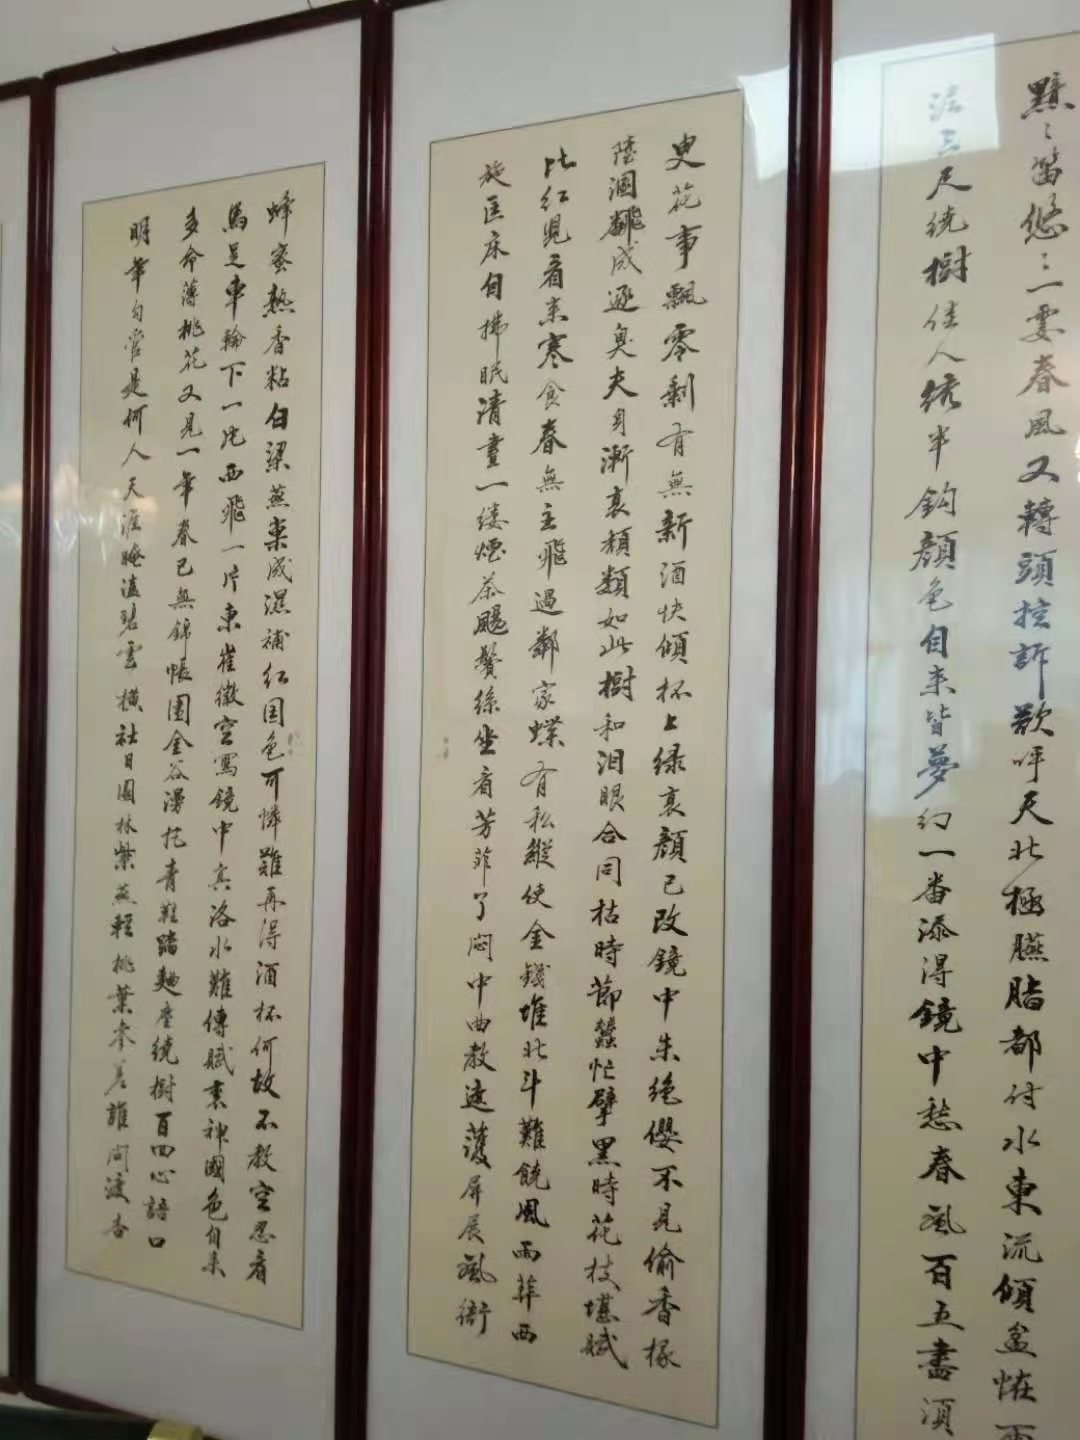 黯黯笛悠悠一霎春風又轉頭控訴欲呼天北極臙脂都付水東流傾盆怪雨
泥三尺繞樹佳人綉半鈎顏色自来皆夢幻一番添得鏡中愁春風百五盡須
史花事飄零剩有無新酒快傾杯上綠衰顏已改鏡中朱絕纓不見偷香掾
墮溷飜成逐臭夫身漸衰頹類如此樹和泪眼合同枯時節蠶忙擘黑時花枝堪賦
比紅兒看来寒食春無主飛過鄰家蝶有私縱使金錢堆北斗難饒風雨葬西
施匡床自拂眠清晝一縷煙茶颺鬢絲坐看芳菲了悶中曲教遮護屏展風銜
蜂蜜熱香粘白梁燕巢成濕補紅国色可憐難再得酒杯何故不教空忍看
馬足車輪下一片西飛一片東崔徽空寫鏡中真洛水難傳賦裏神國色自来
多命薄桃花又見一年春已無錦帳圍金谷漫把青鞋踏麯塵繞樹百回心語口
明年勾管是何人天涯晻溘碧雲橫社日園林紫燕輕桃葉參差誰問渡杏